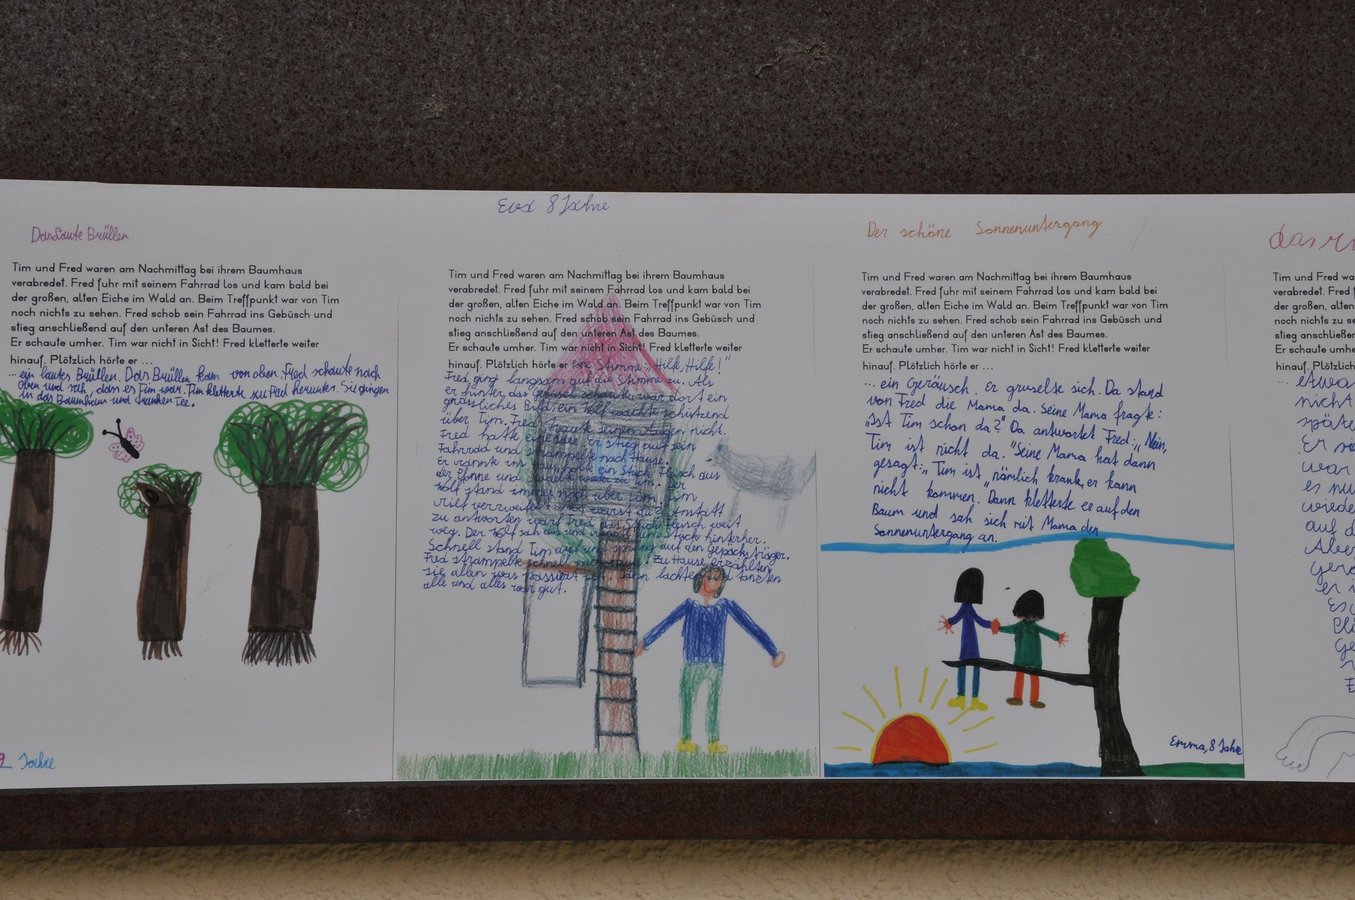 Das laute Brüllen
Tim und Fred waren am Nachmittag bei ihrem Baumhaus
verabredet. Fred fuhr mit seinem Fahrrad los und kam bald bei
der großen, alten Eiche im Wald an. Beim Treffpunkt war von Tim
noch nichts zu sehen. Fred schob sein Fahrrad ins Gebüsch und
stieg anschließend auf den unteren Ast des Baumes.
Er schaute umher. Tim war nicht in Sicht! Fred kletterte weiter
hinauf. Plötzlich hörte er ...
... ein lautes Brüllen. Das Brüllen kam von oben Fred schaute nach
oben und sah, dass es Tim war. Tim kletterte zu Fred herunter. Sie gingen
in das Baumhaus und tranken Tee.
9 Jahre
Eva 8 Jahre
Tim und Fred waren am Nachmittag bei ihrem Baumhaus
verabredet. Fred fuhr mit seinem Fahrrad los und kam bald bei
der großen, alten Eiche im Wald an. Beim Treffpunkt war von Tim
noch nichts zu sehen. Fred schob sein Fahrrad ins Gebüsch und
stieg anschließend auf den unteren Ast des Baumes.
Er schaute umher. Tim war nicht in Sicht! Fred kletterte weiter
hinauf. Plötzlich hörte er eine Stimme: „Hilfe, Hilfe!"
Fred ging langsam auf die Stimme zu. Als
er hinter das Gebüsch schaute war dort ein
grässliches Bild: ein Wolf wachte schützend
über Tim. Fred traute seinen Augen nicht.
Fred hatte eine Idee: er stieg auf sein
Fahrrad und strampelte nach Hause.
Er rannte ins ein Stück Fleisch aus
der Pfanne und zu Tim. Der
Wolf stand immer noch über Tim. Tim
rief verzweifelt: wo warst du? Anstatt
zu antworten warf Fred das Stück Fleisch weit
weg. Der Wolf sah das und dem Stück hinterher.
Schnell stand Tim auf und sprang auf den Gepäckträger.
Fred strampelte schnell nach Hause. Zu Hause erzählten
sie allen was passiert war. Dann lachten und tanzten
alle und alles war gut.
Der schöne Sonnenuntergang
Tim und Fred waren am Nachmittag bei ihrem Baumhaus
verabredet. Fred fuhr mit seinem Fahrrad los und kam bald bei
der großen, alten Eiche im Wald an. Beim Treffpunkt war von Tim
noch nichts zu sehen. Fred schob sein Fahrrad ins Gebüsch und
stieg anschließend auf den unteren Ast des Baumes.
Er schaute umher. Tim war nicht in Sicht! Fred kletterte weiter
hinauf. Plötzlich hörte er ...
... ein Geräusch. Er gruselte sich. Da stand
von Fred die Mama da. Seine Mama fragte:
„Ist Tim schon da?" Da antwortet Fred: „Nein,
Tim ist nicht da." Seine Mama hat dann
gesagt: „Tim ist nämlich krank, er kann
nicht kommen. Dann kletterte er auf den
Baum und sah sich mit Mama den
Sonnenuntergang an.
Emma, 8 Jahre
das
Tim und Fred
verabredet. Fred f
der großen, alten
noch nichts zu se
stieg anschließen
Er schaute umhe
hinauf. Plötzlich
... etwa
nicht
späte
Er
war
es nu
wiede
auf d
Aber
Gerä
er
Es
Plö
Ge